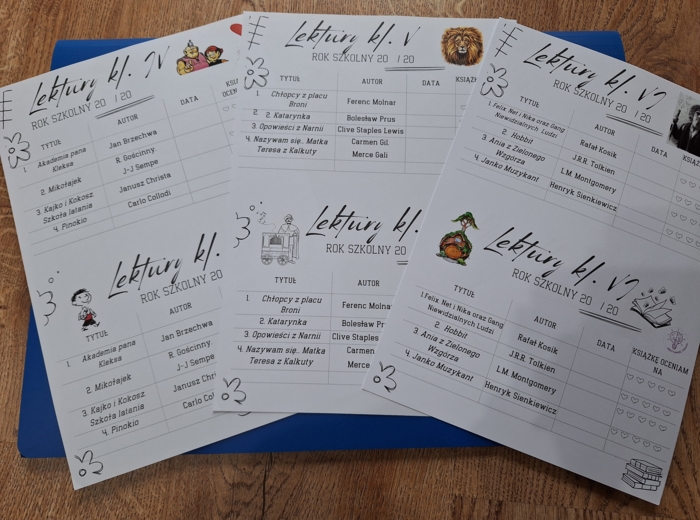 Lektury kl. IV
ROK SZKOLNY 20 / 20
TYTUŁ AUTOR DATA
1. Akademia pana Kleksa Jan Brzechwa
2. Mikołajek R. Gościnny J-J Sempe
3. Kajko i Kokosz. Szkoła latania Janusz Christa
4. Pinokio Carlo Collodi
Lektury kl.
ROK SZKOLNY 20
TYTUŁ AUTOR
1. Akademia pana Kleksa Jan Brzechwa
2. Mikołajek R. Gościnny J-J Sempe
3. Kajko i Kokosz. Szkoła latania Janusz
4. Pinokio
Lektury kl. V
ROK SZKOLNY 20 / 20
TYTUŁ AUTOR DATA
1. Chłopcy z placu Broni Ferenc Molnar
2. Katarynka Bolesław Prus
3. Opowieści z Narnii Clive Staples Lewis
4. Nazywam się.. Matka Teresa z Kalkuty Carmen Gil Merce Gali
Lektury kl.
ROK SZKOLNY 20
TYTUŁ AUTOR
1. Chłopcy z placu Broni Ferenc Molnar
2. Katarynka Bolesław
3. Opowieści z Narnii Clive Staples
4. Nazywam się.. Matka Teresa z Kalkuty Carmen Merce
Lektury kl. VI
ROK SZKOLNY 20 / 20
TYTUŁ AUTOR DATA
1. Felix, Net i Nika oraz Gang Niewidzialnych Ludzi Rafał Kosik
2. Hobbit J.R.R. Tolkien
3. Ania z Zielonego Wzgórza L.M. Montgomery
4. Janko Muzykant Henryk Sienkiewicz
Lektury kl. VI
ROK SZKOLNY 20 / 20
TYTUŁ AUTOR DATA KSIĄŻKĘ OCENIAM NA
1. Felix, Net i Nika oraz Gang Niewidzialnych Ludzi Rafał Kosik
2. Hobbit J.R.R. Tolkien
3. Ania z Zielonego Wzgórza L.M. Montgomery
4. Janko Muzykant Henryk Sienkiewicz